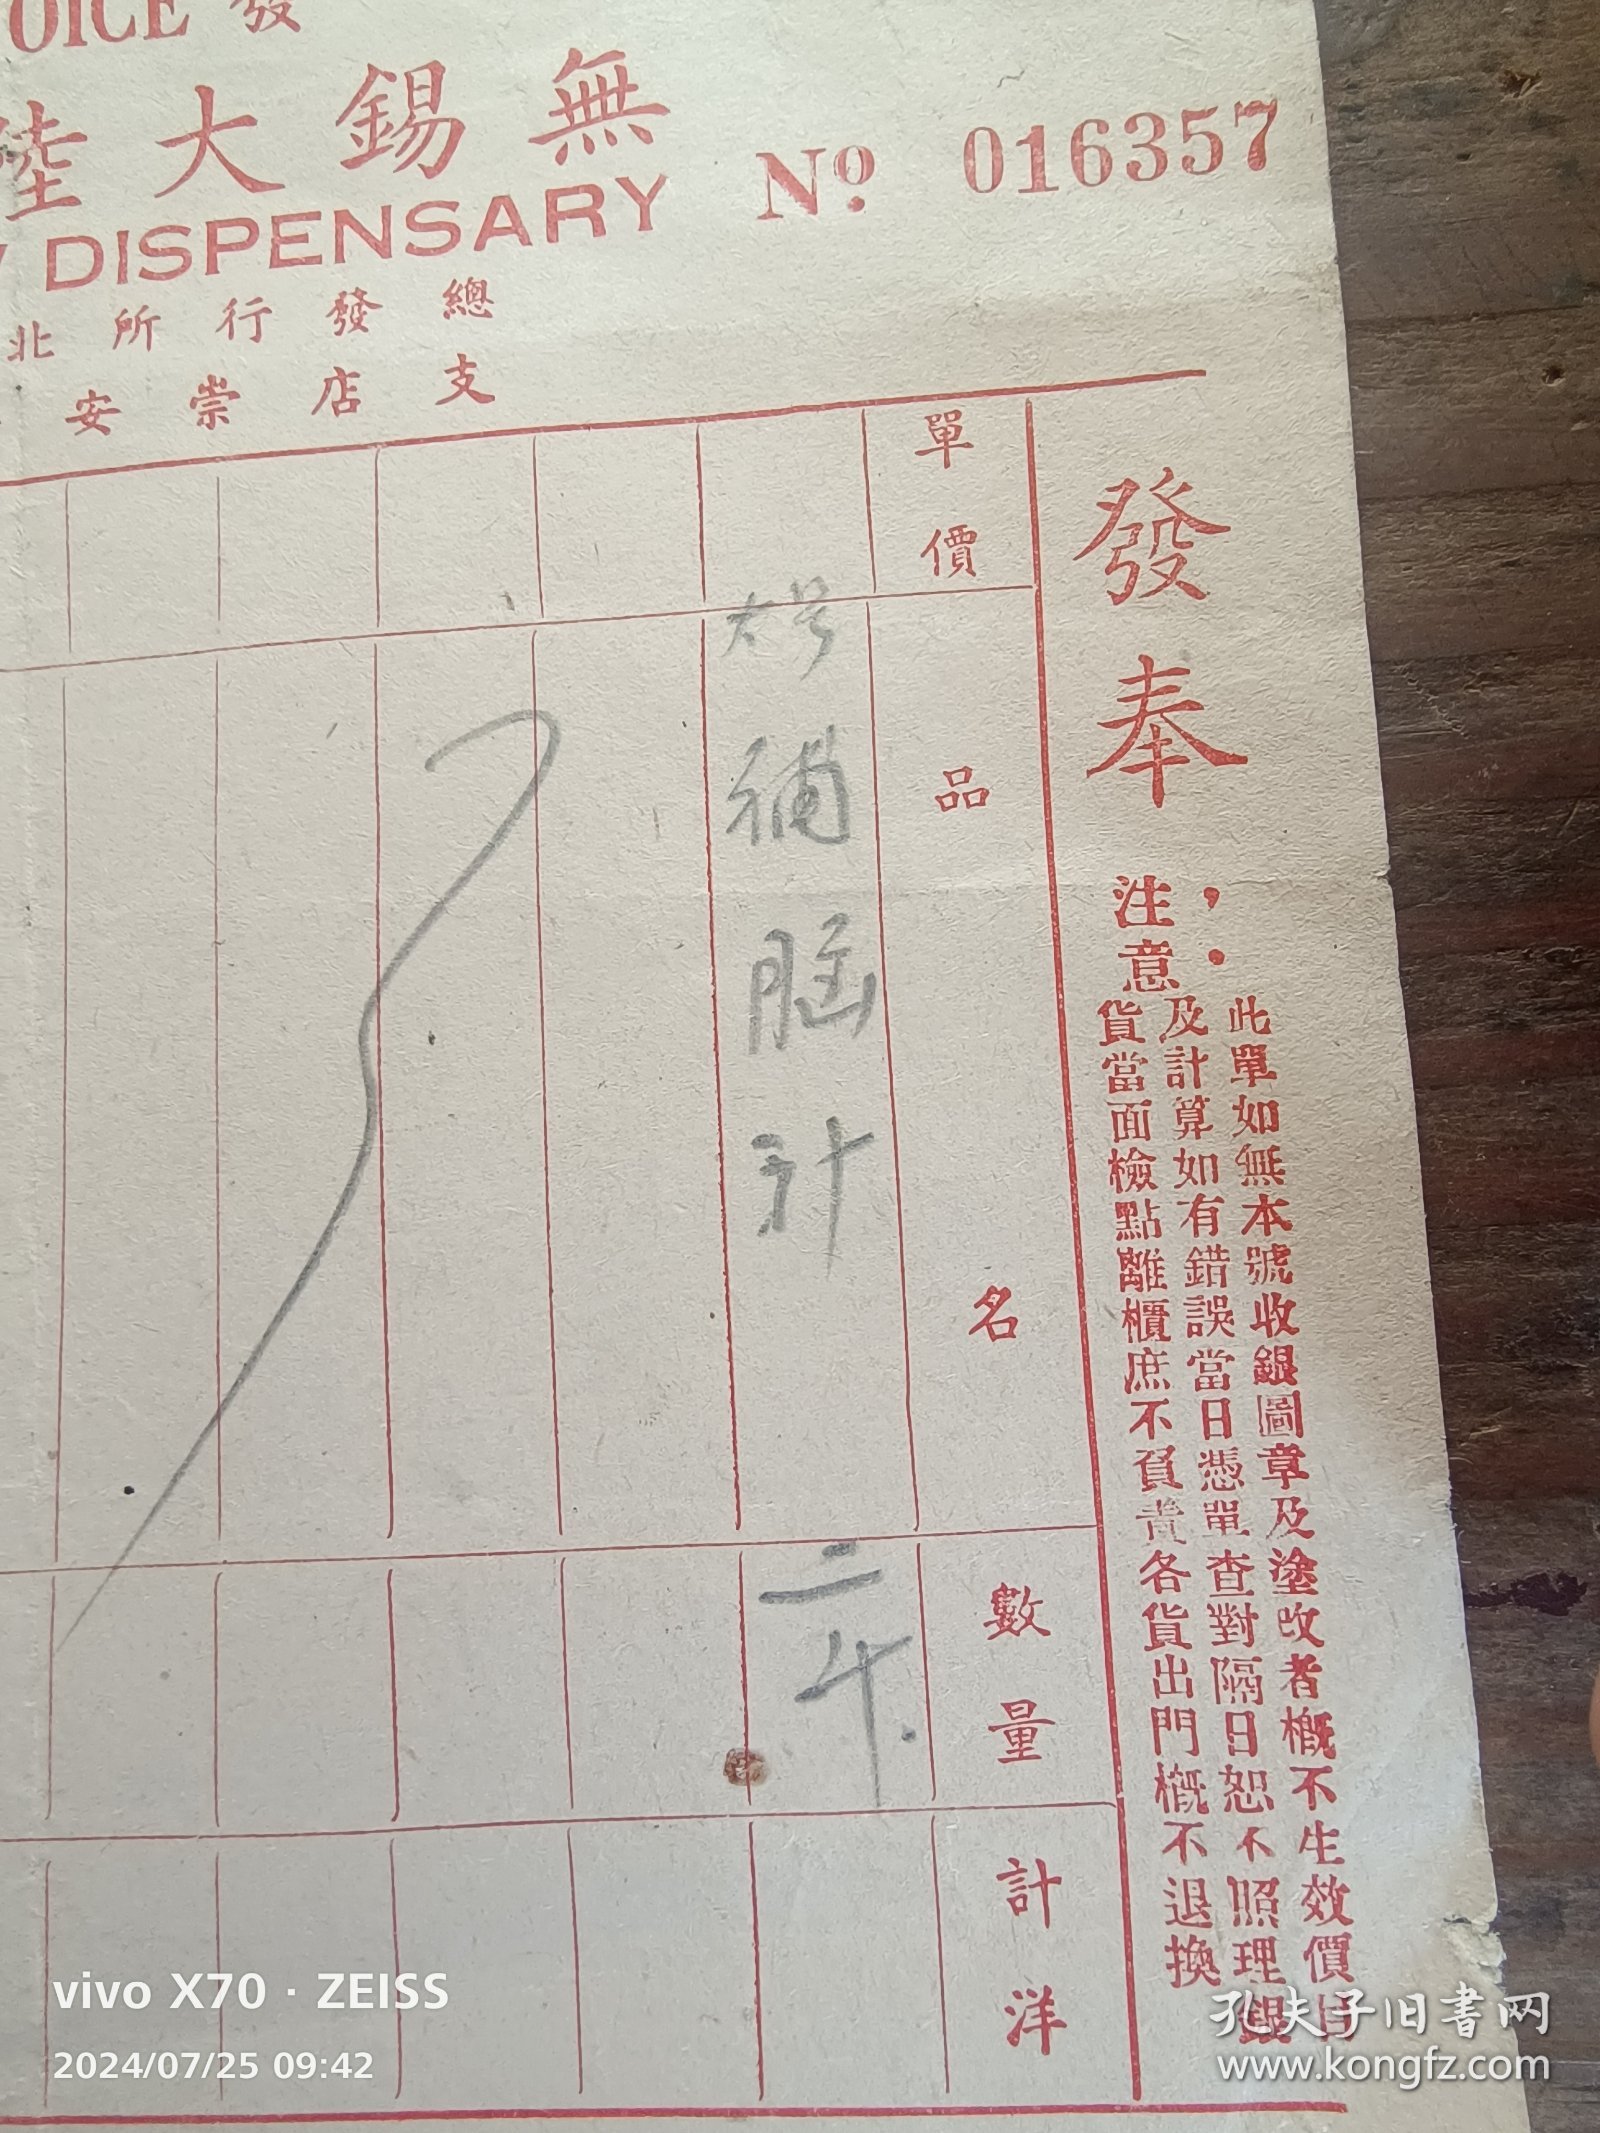 OICE 發
無錫大陸
DISPENSARY
No. 016357
總發行所北
支店崇安
發奉
注意：
此單如無本號收銀圖章及塗改者概不生效價目
及計算如有錯誤當日憑單查對隔日恕不照理銀
貨當面檢點離櫃庶不負責各貨出門概不退換
單價
品名
數量
計洋
大号
補腦汁
二
vivo X70 · ZEISS
2024/07/25 09:42
孔夫子旧书网
www.kongfz.com